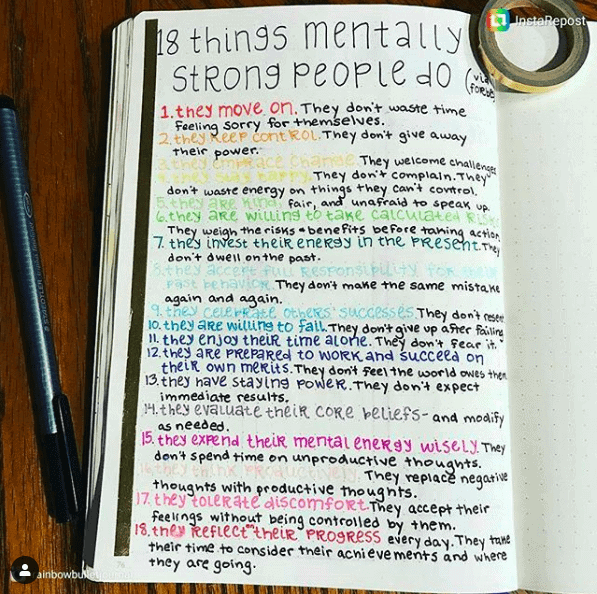 InstaRepost
18 things mentally
strong people do (via
forbes)
1. they move on. They don't waste time
feeling sorry for themselves.
2. they keep control. They don't give away
their power.
3. they embrace change. They welcome challenges
4. they stay happy. They don't complain. They
don't waste energy on things they can't control.
5. they are kind, fair, and unafraid to speak up.
6. they are willing to take calculated risks.
They weigh the risks + benefits before taking action
7. they invest their energy in the present. They
don't dwell on the past.
8. they accept full responsibility for their
past behavior. They don't make the same mistake
again and again.
9. they celebrate others' successes. They don't resent
10. they are willing to fail. They don't give up after failing
11. they enjoy their time alone. They don't fear it.
12. they are prepared to work and succeed on
their own merits. They don't feel the world owes them
13. they have staying power. They don't expect
immediate results.
14. they evaluate their core beliefs- and modify
as needed.
15. they expend their mental energy wisely. They
don't spend time on unproductive thoughts.
16. they think productively. They replace negative
thoughts with productive thoughts.
17. they tolerate discomfort. They accept their
feelings without being controlled by them.
18. they reflect on their progress every day. They take
their time to consider their achievements and where
they are going.